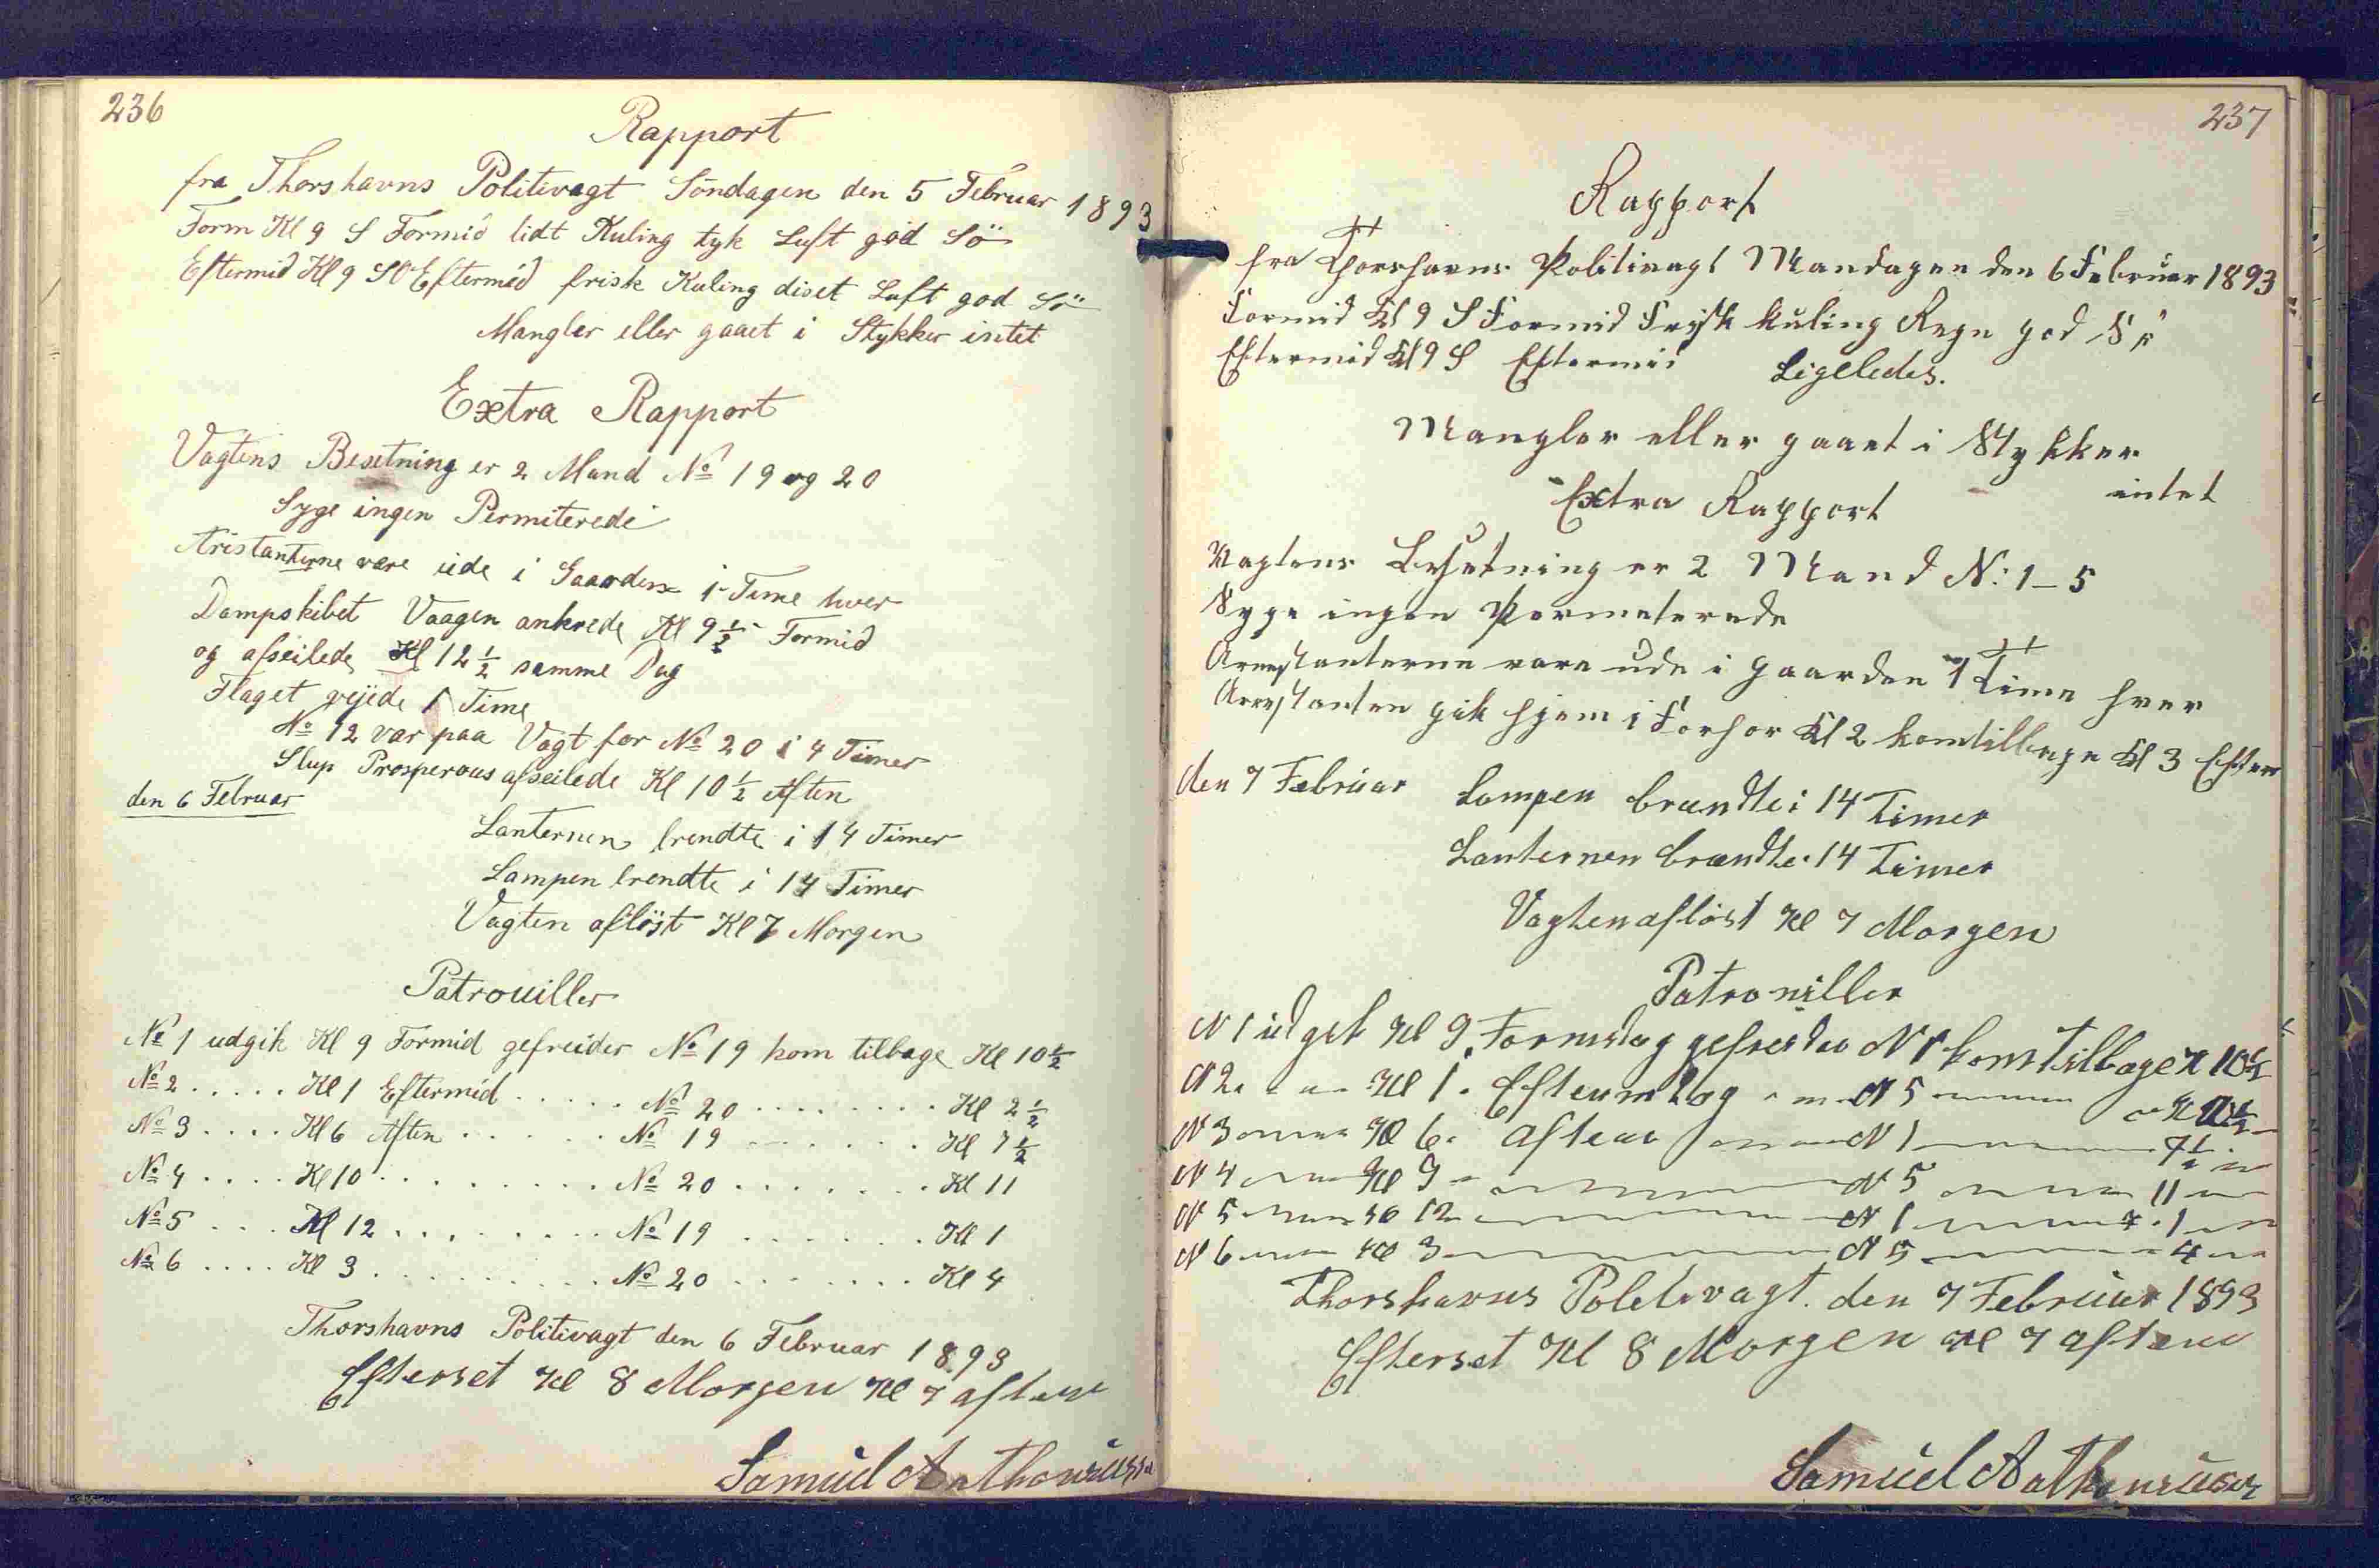 236
Rapport
fra Thorshavns Politivagt Söndagen den 5 Februar 1893
Form Kl 9 S Formid lidt Kuling tyk Luft god Sö
Eftermid Kl 9 SO Eftermid frisk Kuling diset Luft god Sö
Mangler eller gaaet i Stykker intet
Extra Rapport
Vagtens Besetning er 2 Mand No 19 og 20
Syge ingen Permiterede
Aristanterne vare ude i Gaarden 1 Time hver
Dampskibet Vaagen ankrede Kl 9 1/2 Formid
og afseilede Kl 12 1/2 samme Dag
Flaget vejede 1 Time
No 12 var paa Vagt for No 20 i 4 Timer
Slup Prosperous afseilede Kl 10 1/2 Aften
den 6 Februar
Lanternen brendte i 14 Timer
Lampen brendte i 14 Timer
Vagten aflöst Kl 7 Morgen
Patrouiller
No 1 udgik Kl 9 Formid gefreider No 19 kom tilbage Kl 10 1/2
No 2 ..... Kl 1 Eftermid ..... No 20 ........ Kl 2 1/2
No 3 .... Kl 6 Aften ...... No 19 ....... Kl 7 1/2
No 4 .... Kl 10 ......... No 20 ....... Kl 11
No 5 ... Kl 12 ........ No 19 ....... Kl 1
No 6 .... Kl 3 ......... No 20 ........ Kl 4
Thorshavns Politivagt den 6 Februar 1893
Efterset Kl 8 Morgen Kl 7 aften
Samuel Anthoniusen
237
Rapport
fra Thorshavns Politivagt Mandagen den 6 Februar 1893
Formid Kl 9 S Formid Frisk kuling Regn god Sö
Eftermid Kl 9 S Eftermid Ligeledes.
Mangler eller gaaet i Stykker
intet
Extra Rapport
Vagtens Besetning er 2 Mand N: 1–5
Syge ingen Permeterede
Arrestanterne vare ude i gaarden 1 Time hver
Arrestanten gik hjem i Forhor Kl 2 kom tilbage Kl 3 Efterm
den 7 Februar
Lampen brændte i 14 Timer
Lanternen brændte 14 Timer
Vagten aflöst Kl 7 Morgen
Patrouiller
N 1 udgik Kl 9 Formidag gefreider N 1 kom tilbage K 10 1/2
N 2 Kl 1 Eftermidag N 5
N 3 Kl 6 aften N 1 7 1/2
N 4 Kl 9 N 5 11
N 5 Kl 12 N 1 1
N 6 Kl 3 N 5 4
Thorshavns Politivagt. den 7 Februar 1893
Efterset Kl 8 Morgen Kl 7 aften
Samuel Anthoniusen